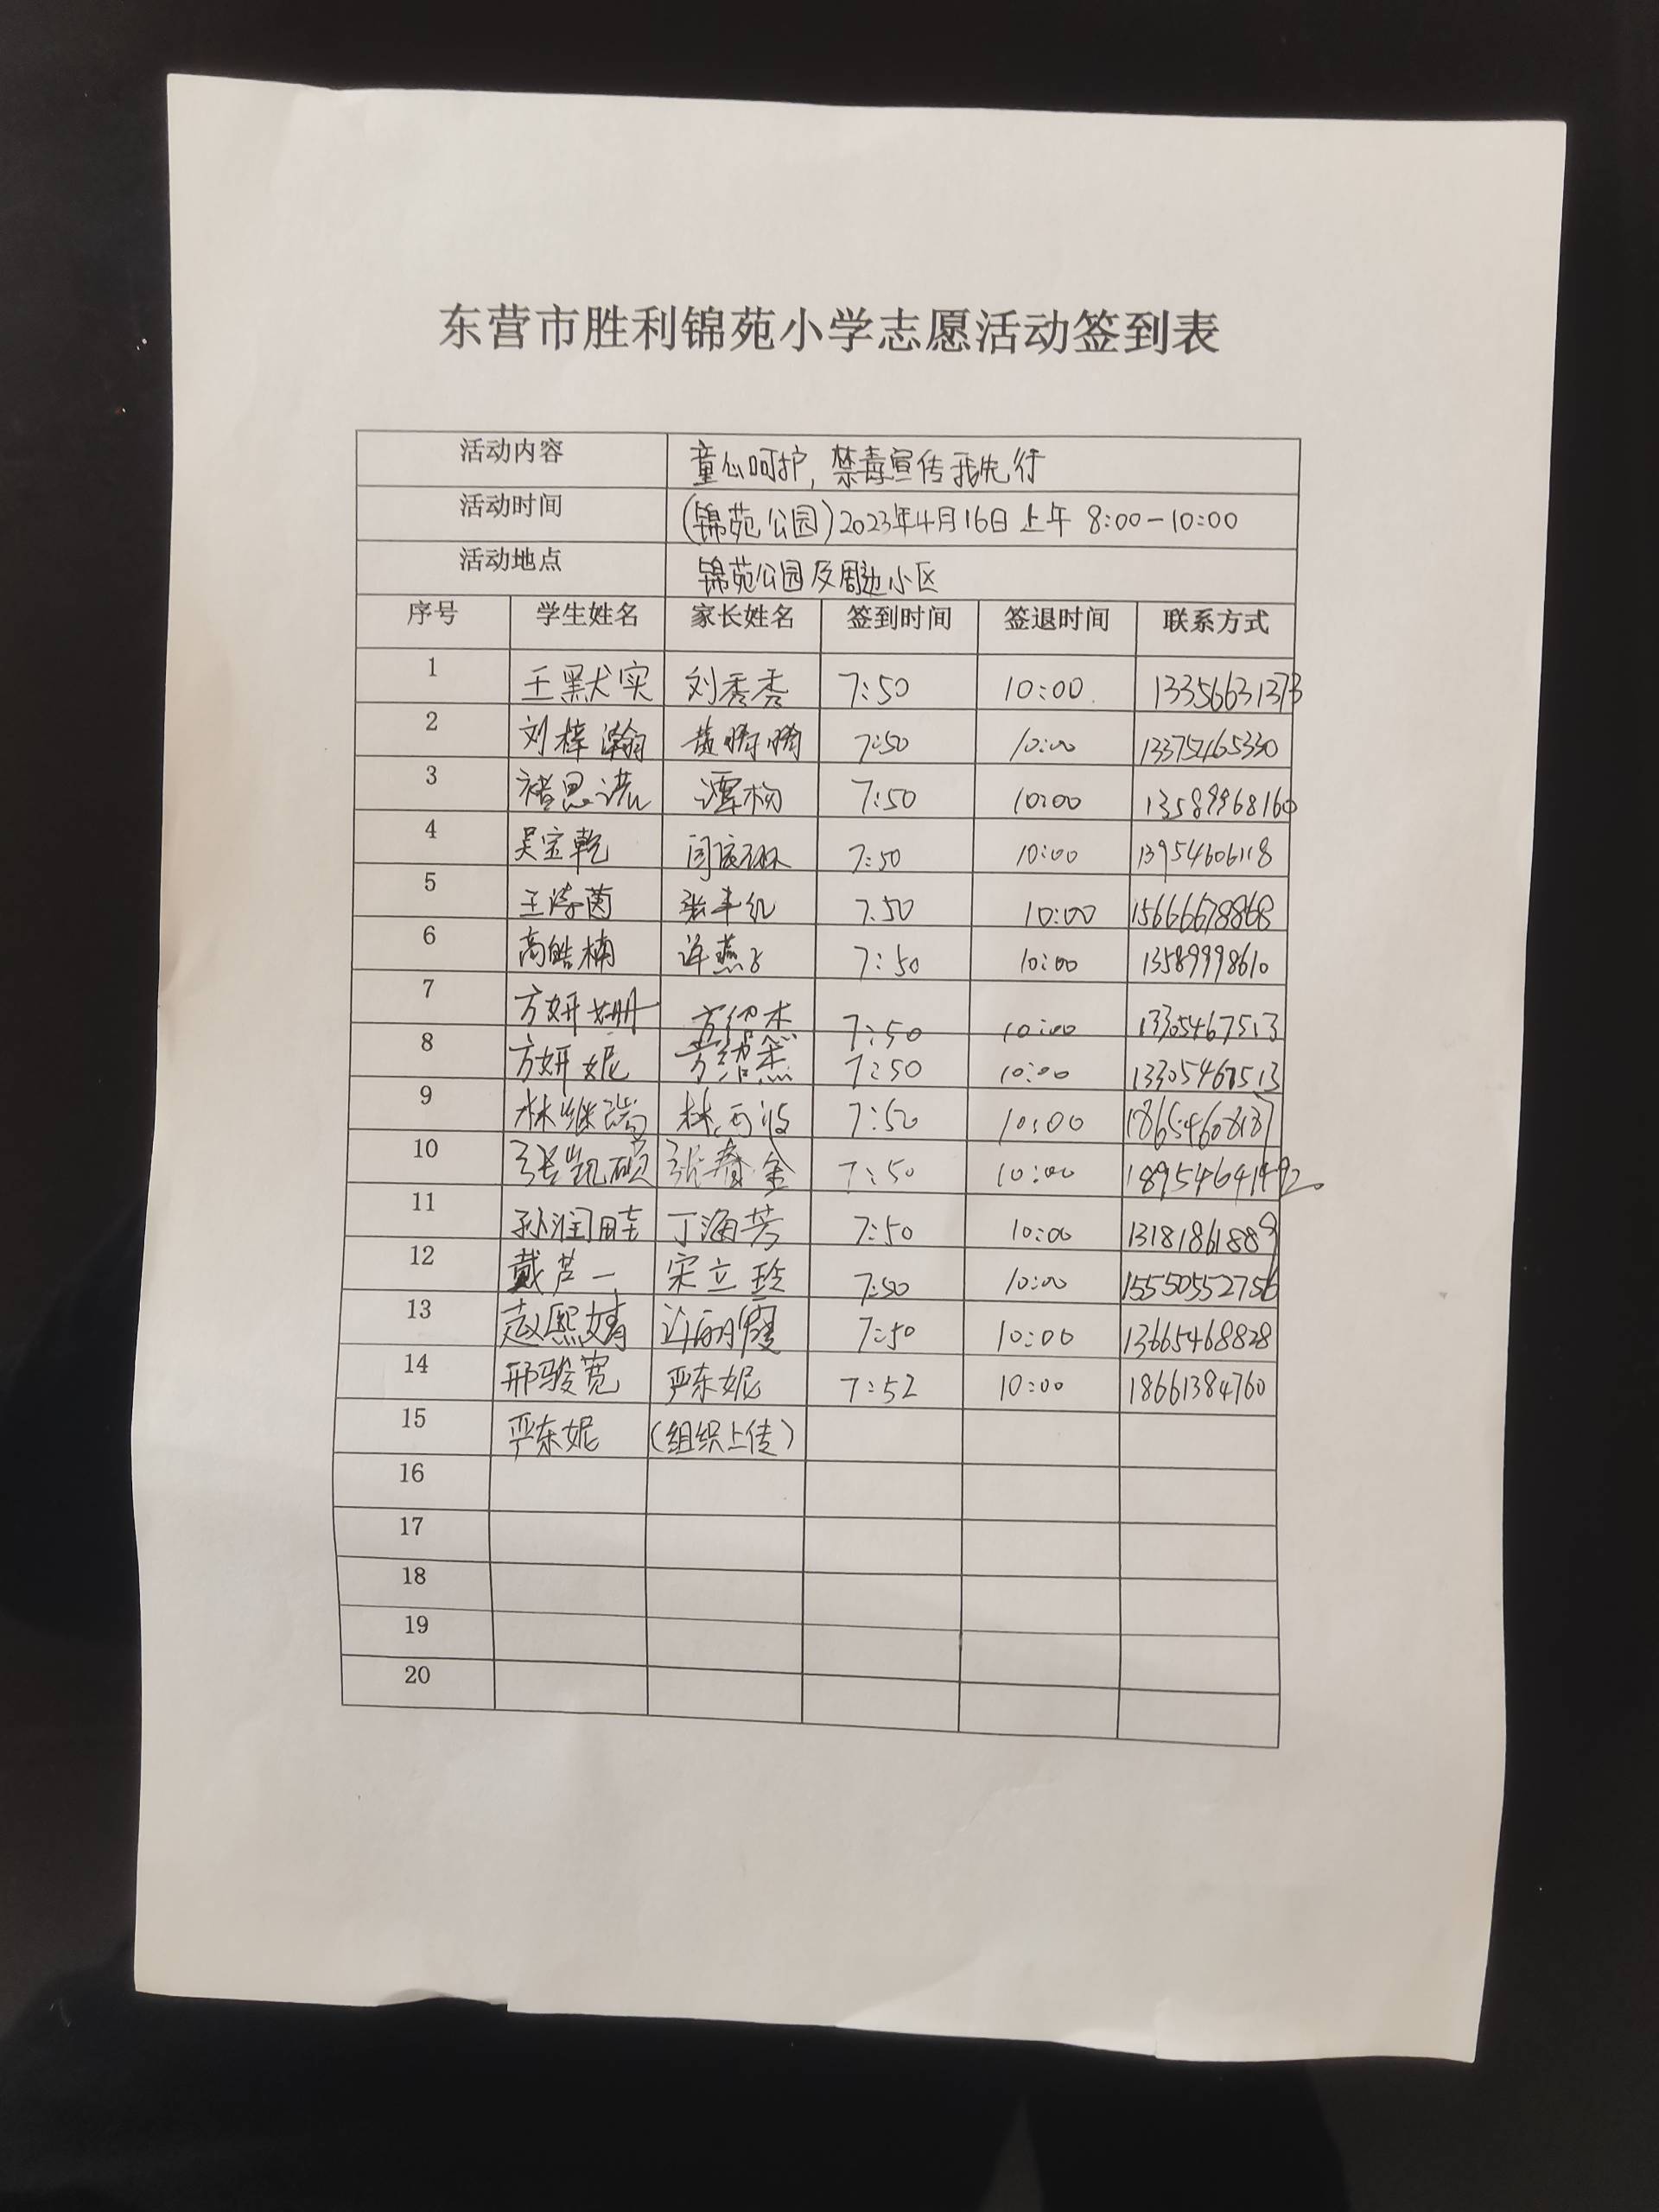 东营市胜利锦苑小学志愿活动签到表
活动内容 童心呵护,禁毒宣传我先行
活动时间 (锦苑公园)2023年4月16日上午 8:00-10:00
活动地点 锦苑公园及周边小区
序号 学生姓名 家长姓名 签到时间 签退时间 联系方式
1 王默实 刘秀秀 7:50 10:00 13356631373
2 刘梓瀚 黄晓晓 7:50 10:00 13375465330
3 褚思诺 谭杨 7:50 10:00 13589968160
4 吴宝乾 7:50 10:00 13954606118
5 7:50 10:00 15666678868
6 高皓楠 许燕子 7:50 10:00 13589998610
7 方妍姗 方绍杰 7:50 10:00 13305467513
8 方妍妮 方绍杰 7:50 10:00 13305467513
9 林继瑞 7:50 10:00 18654608137
10 张凯硕 张春金 7:50 10:00 18954641492
11 孙润畦 丁海芳 7:50 10:00 13181861889
12 戴芦一 宋立玲 7:50 10:00 15550552756
13 赵熙婧 许丽霞 7:50 10:00 13665468828
14 邢骏宽 严东妮 7:52 10:00 18661384760
15 严东妮 (组织上传)
16
17
18
19
20